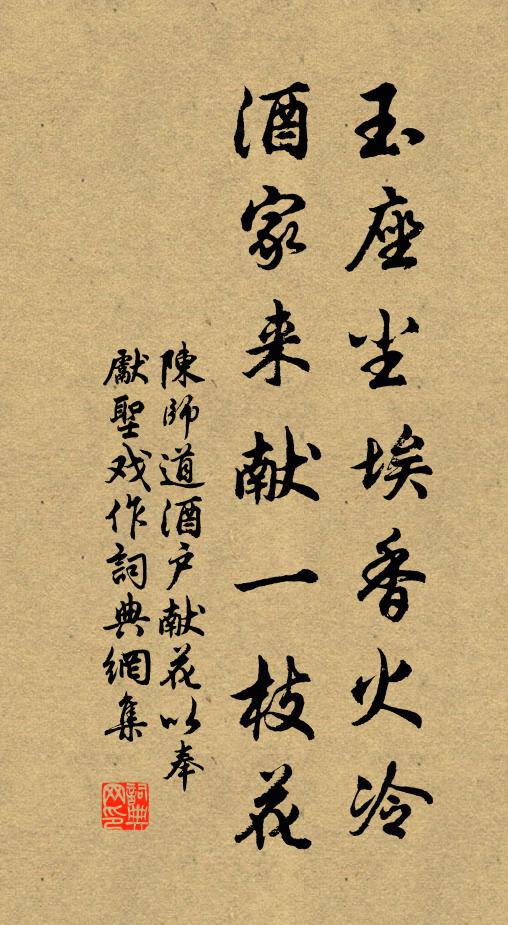 玉座尘埃香火冷
酒家来献一枝花
陳師道酒户献花以奉
獻聖戏作詞典網集
詞典网印